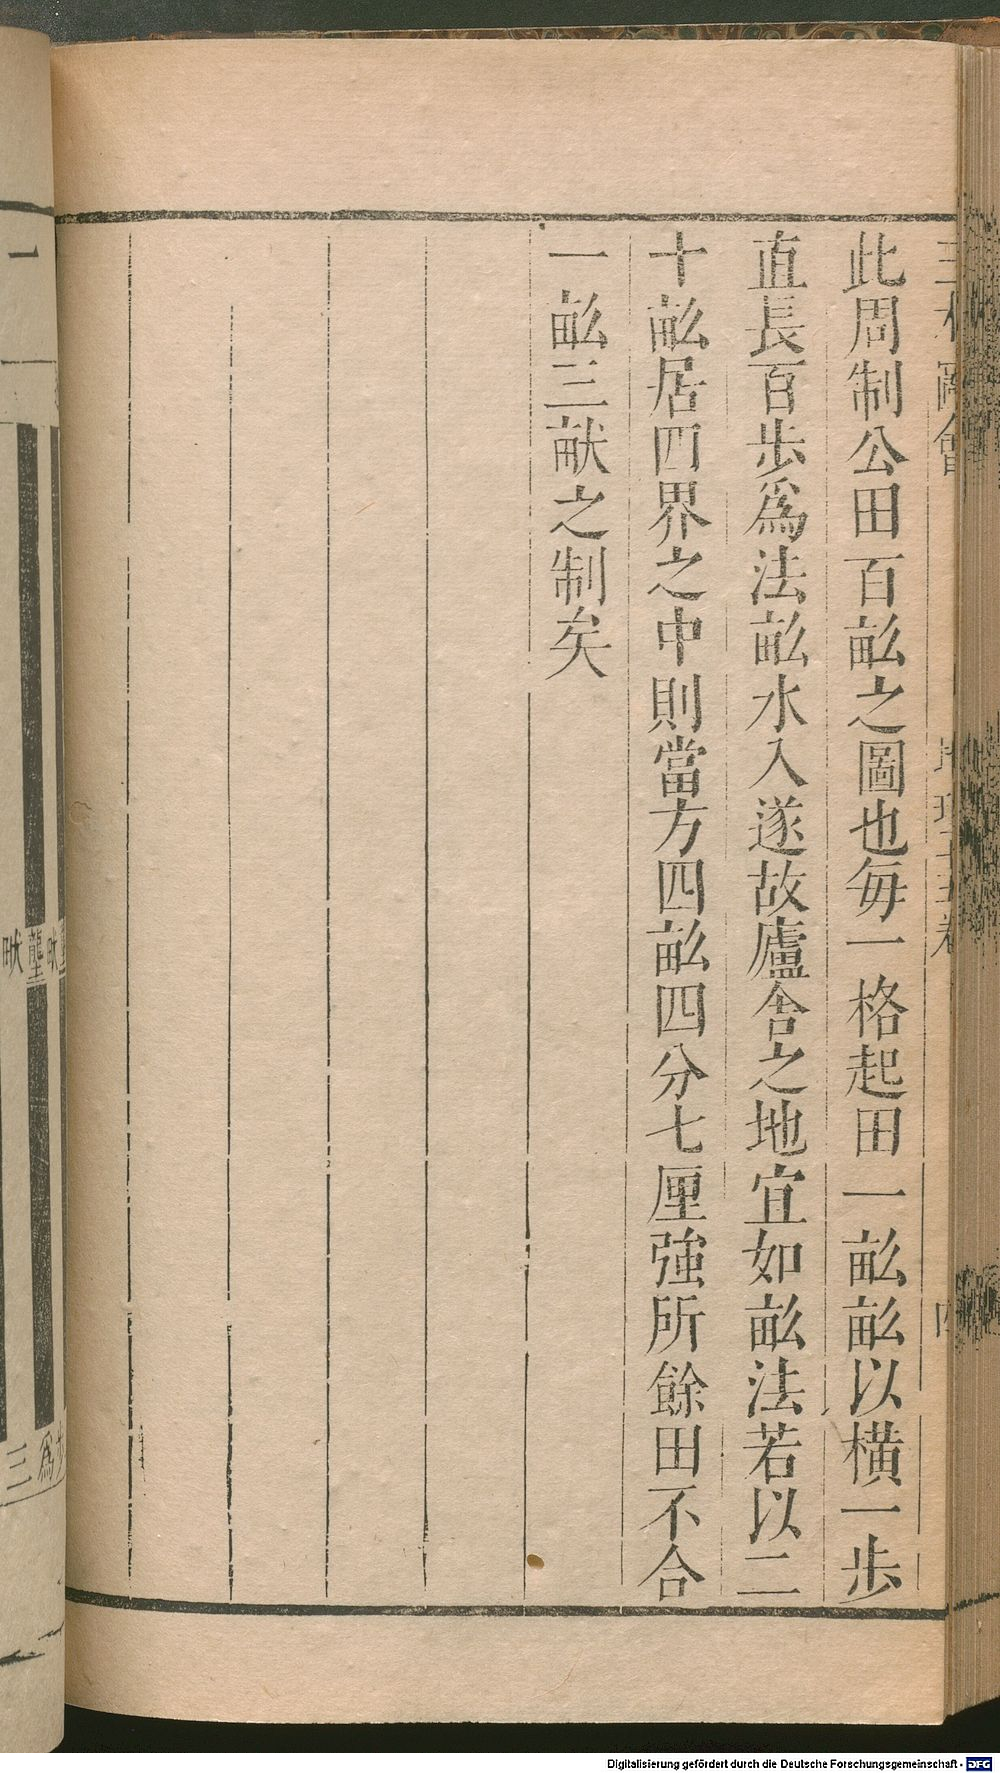 此周制公田百畆之圖也毎一格起田一畆畆以橫一步
直長百步爲法畆水入遂故廬舍之地宜如畆法若以二
十畆居四界之中則當方四畆四分七厘強所餘田不合
一畆三畎之制矣
一
畎 壟 畎
三 爲
Digitalisierung gefördert durch die Deutsche Forschungsgemeinschaft - DFG